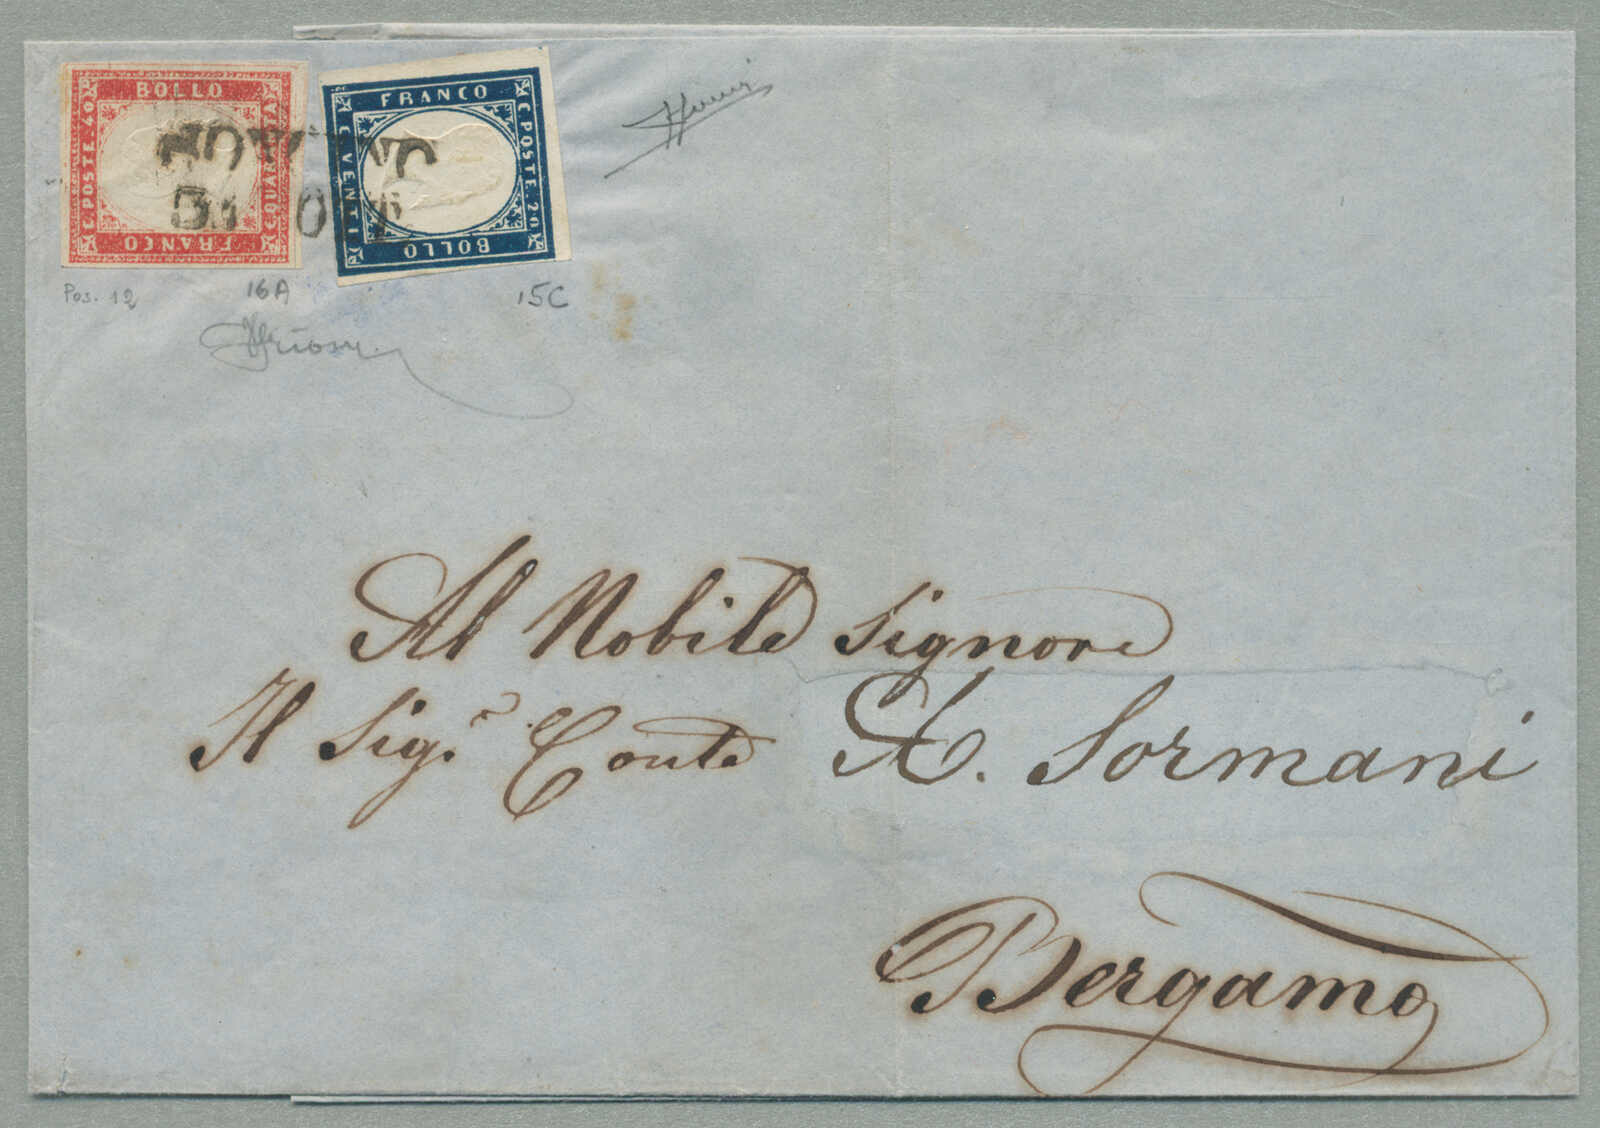 BOLLO
C. POSTE. 40
C. QUARANTA
FRANCO
FRANCO
C. VENTI
C. POSTE. 20
BOLLO
Pos. 12
16A
15C
Al Nobile Signore
Il Sig.r Conte A. Sormani
Bergamo